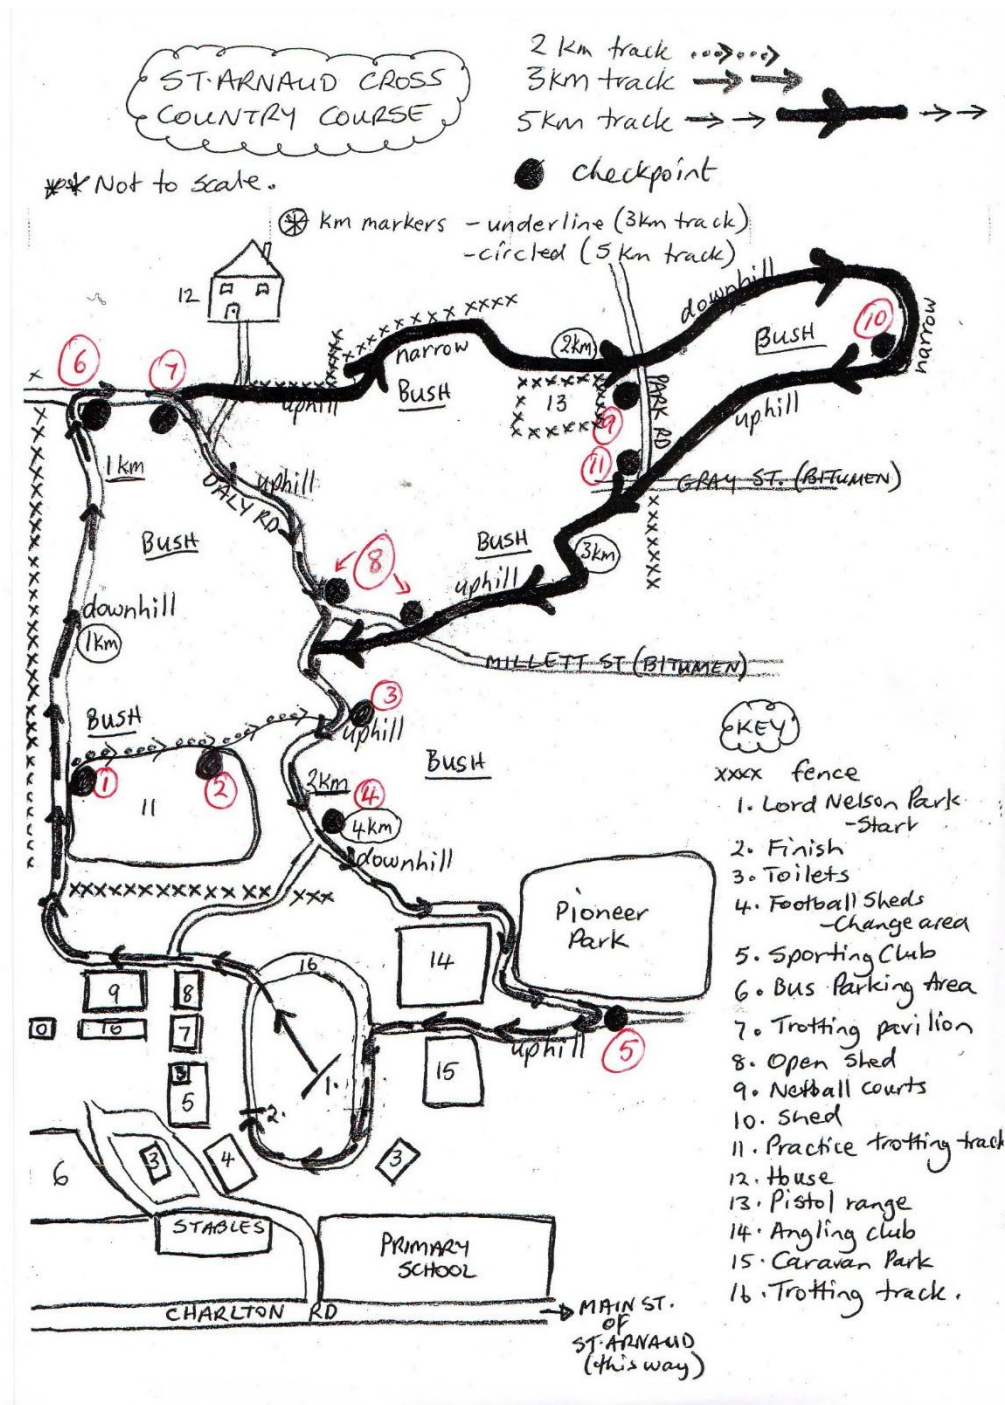 ST. ARNAUD CROSS
COUNTRY COURSE
2 Km track
3Km track
5Km track
checkpoint
** Not to scale.
* km markers - underline (3km track)
- circled (5 Km track)
12
6
7
narrow
uphill
BUSH
2km
downhill
BUSH
10
narrow
uphill
13
9
PARK RD
11
GRAY ST. (BITUMEN)
1km
DALY RD
uphill
BUSH
8
BUSH
3km
uphill
downhill
1km
MILLETT ST (BITUMEN)
BUSH
3
uphill
1
2
11
2km
4
4km
BUSH
downhill
Pioneer
Park
14
16
9
8
10
10
7
3
5
1.
2.
15
uphill
5
6
3
4
3
STABLES
PRIMARY
SCHOOL
CHARLTON RD
MAIN ST.
OF
ST. ARNAUD
(this way)
KEY
xxxx fence
1. Lord Nelson Park
- Start
2. Finish
3. Toilets
4. Football Sheds
- Change area
5. Sporting Club
6. Bus Parking Area
7. Trotting pavilion
8. Open Shed
9. Netball courts
10. Shed
11. Practice trotting track
12. House
13. Pistol range
14. Angling club
15. Caravan Park
16. Trotting track.